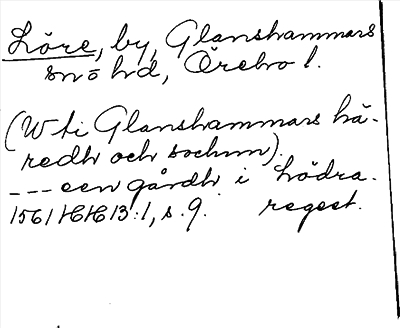 Löre, by, Glanshammars
sn o hd, Örebro l.
(Wti Glanshammars hä-
redh och sochnn).
--- een gårdh i Lödra.
1561 HH 13:1, s. 9. regest.